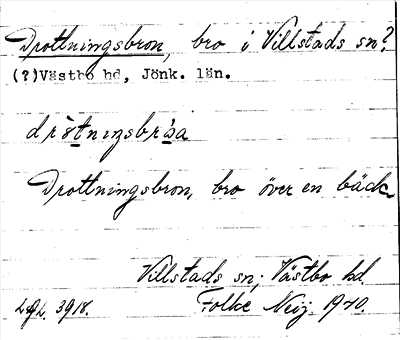 Drottningsbron, bro i Villstads sn?
(?)Västbo hd, Jönk. län.
Drottningsbron, bro över en bäck
Villstads sn, Västbo hd.
3918. Folke Neij. 1970.